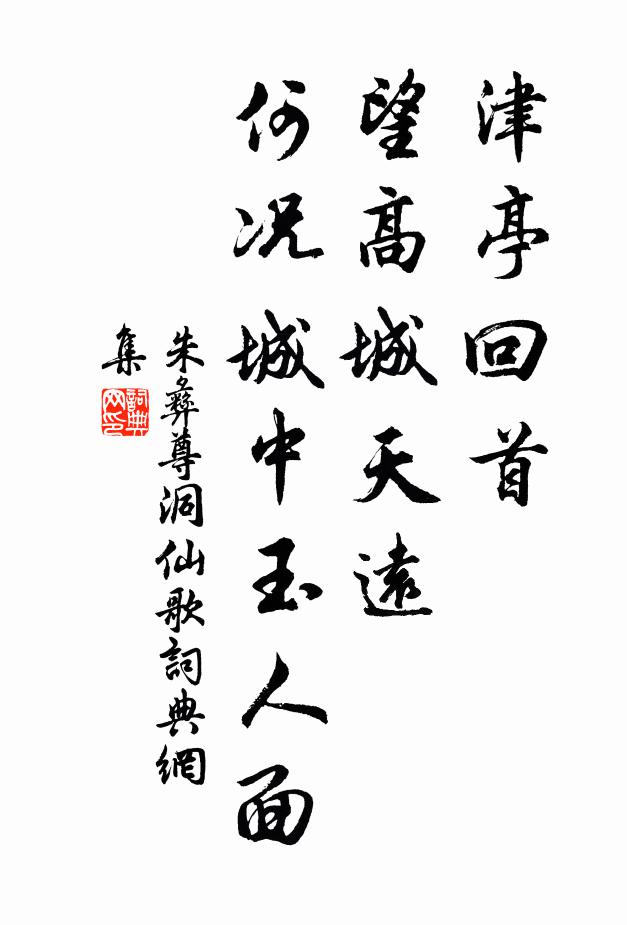 津亭回首
望高城天遠
何况城中玉人面
朱彝尊洞仙歌詞典網
集
詞典
网印